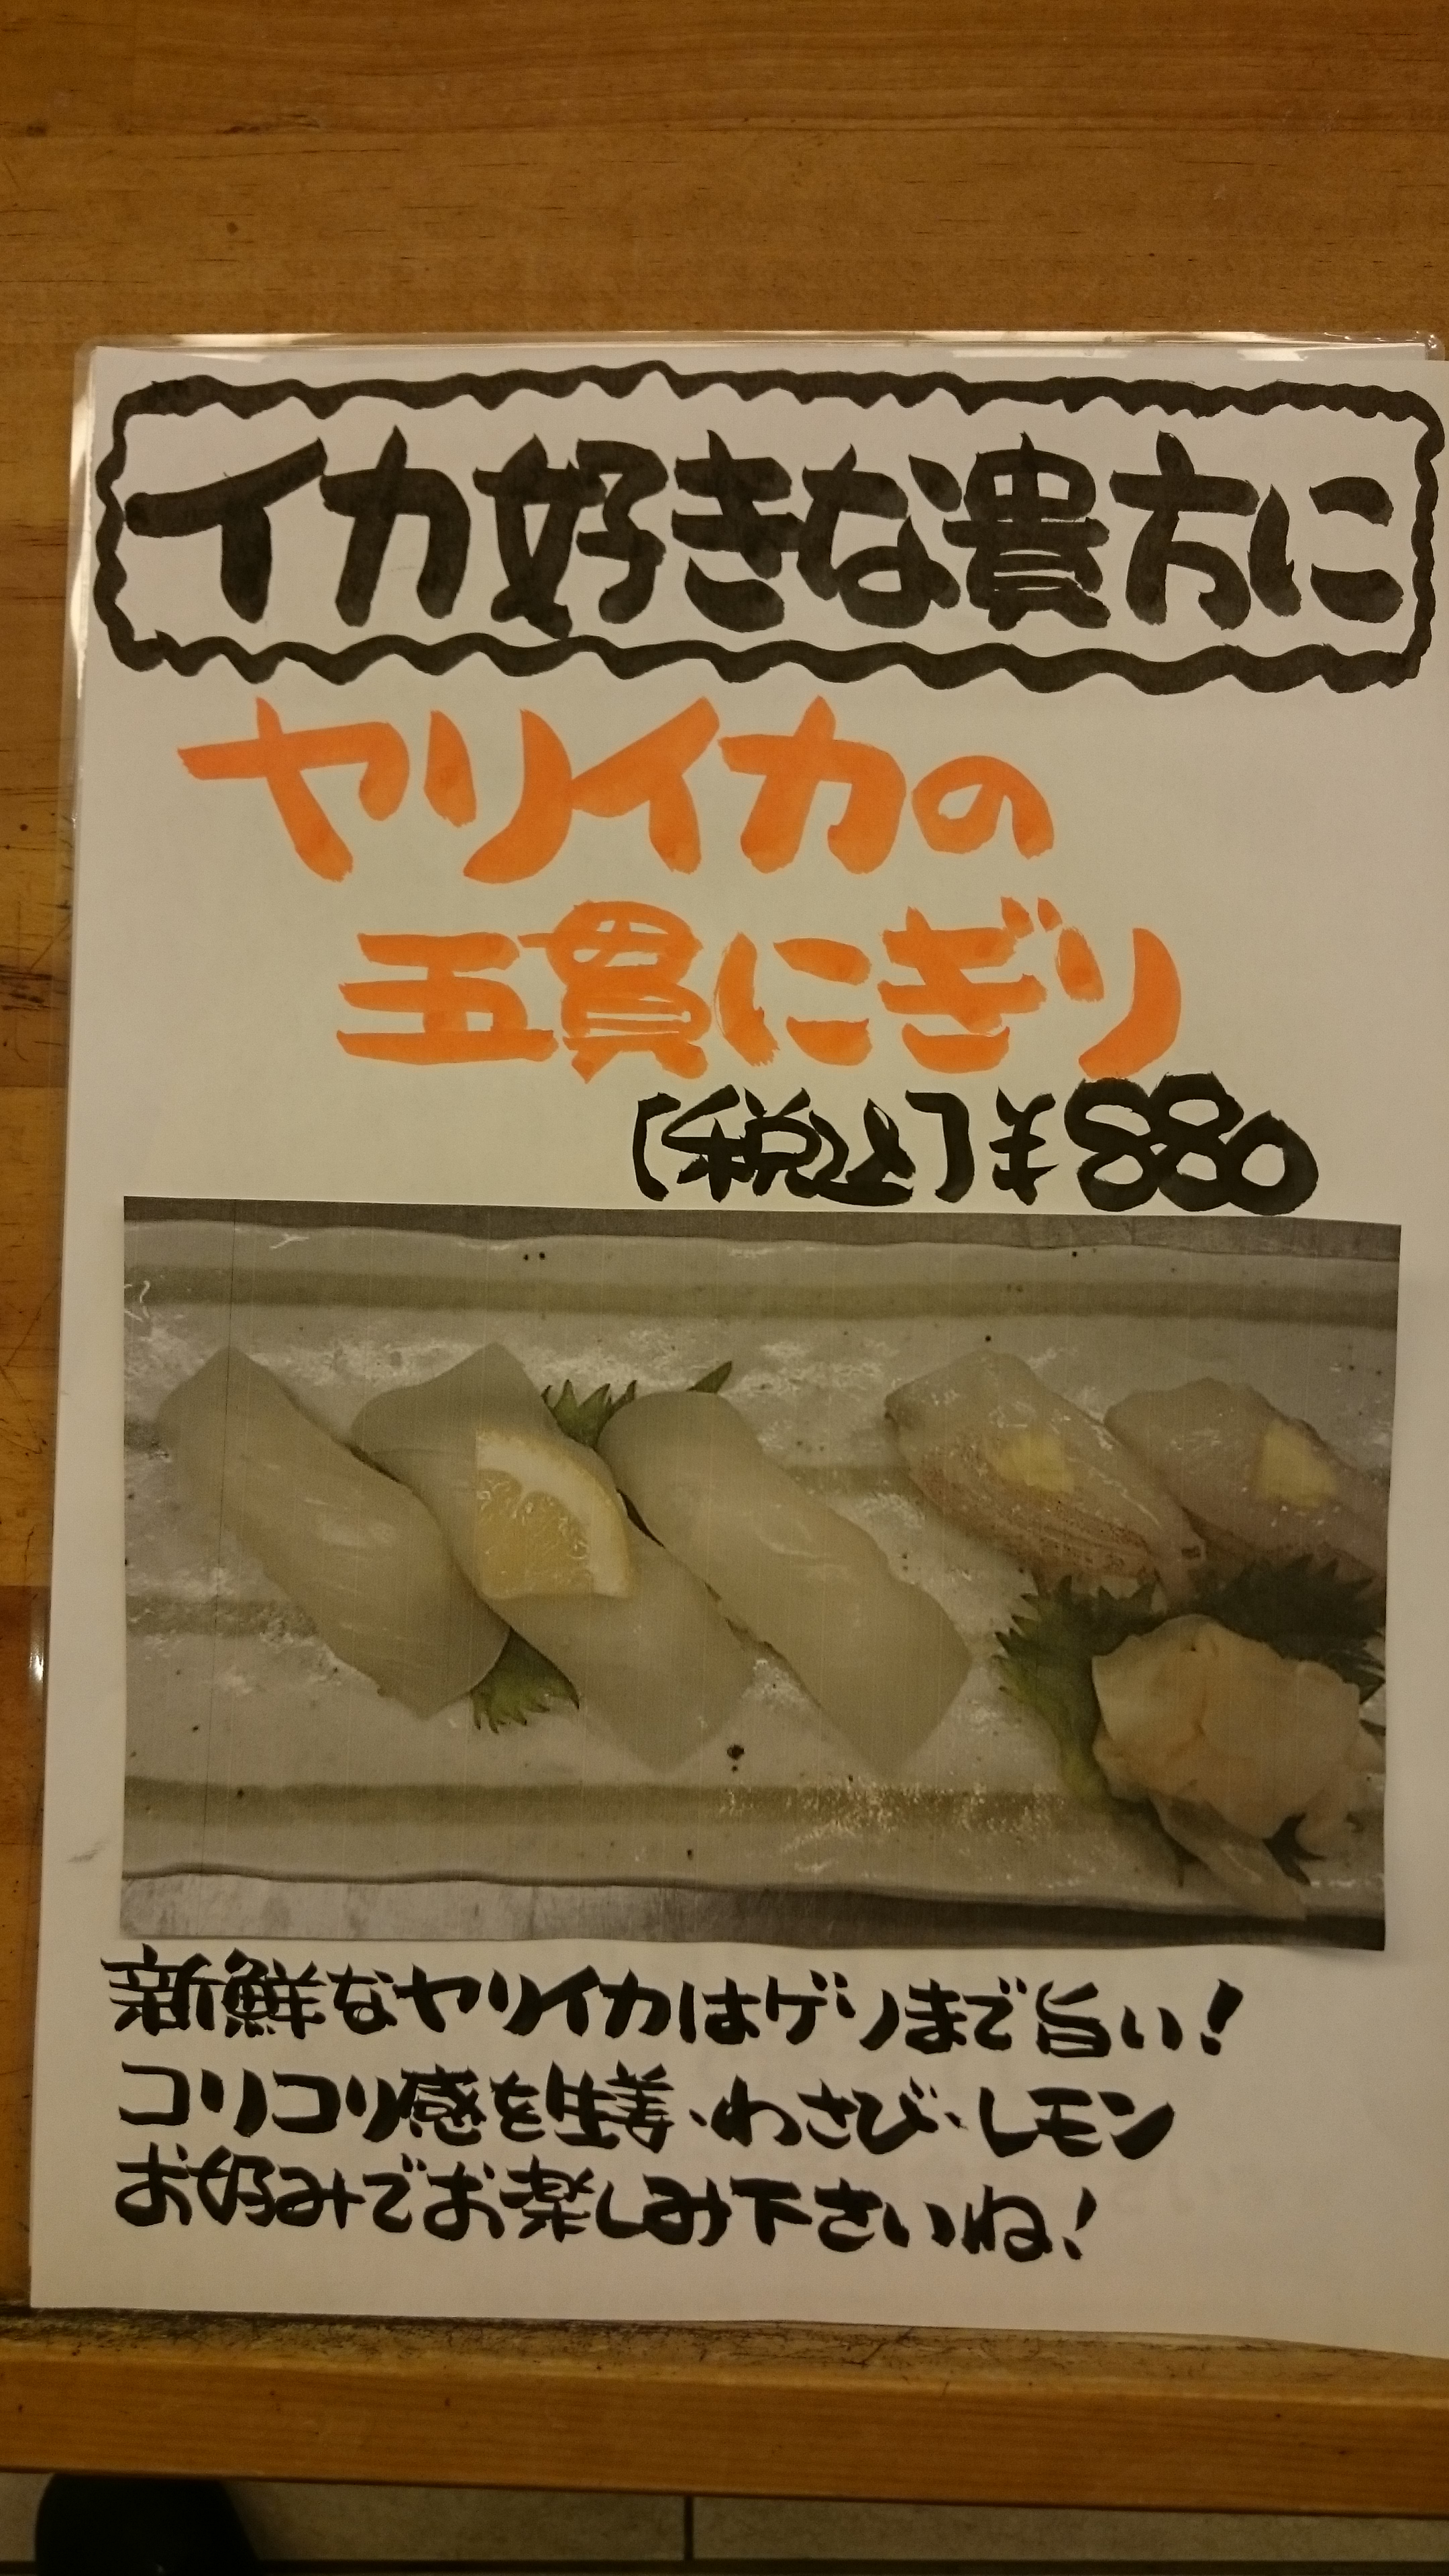 イカ好きな貴方に
ヤリイカの
五貫にぎり
[税込]¥880
新鮮なヤリイカはゲソまで旨い!
コリコリ感を生姜・わさび・レモン
お好みでお楽しみ下さいね!